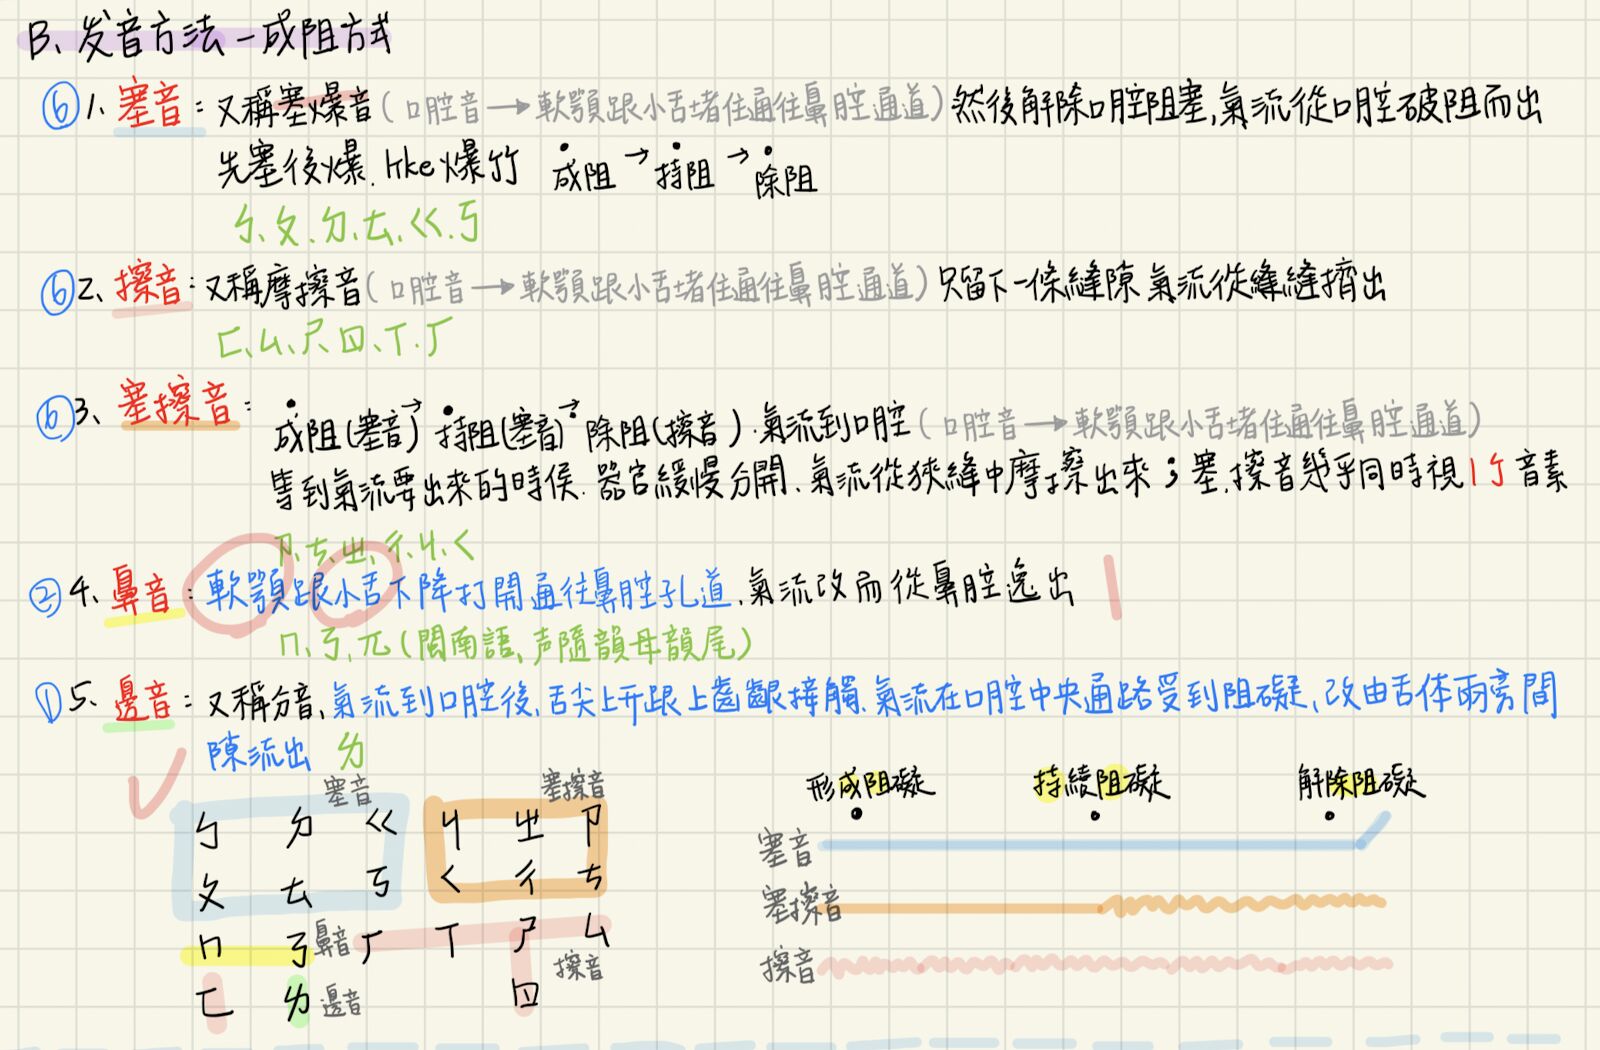 B、发音方法-成阻方式
⑥1、塞音：又稱塞爆音(口腔音→軟顎跟小舌堵住通往鼻腔通道)然後解除口腔阻塞,氣流從口腔破阻而出
先塞後爆.like爆竹 成阻→持阻→除阻
ㄅ、ㄆ.ㄉ、ㄊ、ㄍ.ㄎ
⑥2、擦音：又稱摩擦音(口腔音→軟顎跟小舌堵住通往鼻腔通道)只留下一條縫隙氣流從縫縫擠出
ㄈ、ㄙ、ㄕ.ㄖ、ㄒ.ㄏ
⑥3、塞擦音：成阻(塞音)→持阻(塞音)→除阻(擦音).氣流到口腔(口腔音→軟顎跟小舌堵住通往鼻腔通道)
等到氣流要出來的時侯.器官緩慢分開、氣流從狹縫中摩擦出來；塞.擦音幾乎同時視1个音素
ㄗ、ㄘ、ㄓ、ㄔ、ㄐ、ㄑ
②4、鼻音：軟顎跟小舌下降打開通往鼻腔孔道.氣流改而從鼻腔逸出
ㄇ、ㄋ、ㄫ(閩南語、声隨韻母韻尾)
①5、邊音：又稱分音、氣流到口腔後、舌尖上升跟上齒齦接觸.氣流在口腔中央通路受到阻礙、改由舌体兩旁間
隙流出 ㄌ
塞音 塞擦音
ㄅ ㄉ ㄍ ㄐ ㄓ ㄗ
ㄆ ㄊ ㄎ ㄑ ㄔ ㄘ
ㄇ ㄋ 鼻音 ㄏ ㄒ ㄕ ㄙ
擦音
ㄈ ㄌ 邊音 ㄖ
形成阻礙 持續阻礙 解除阻礙
塞音
塞擦音
擦音